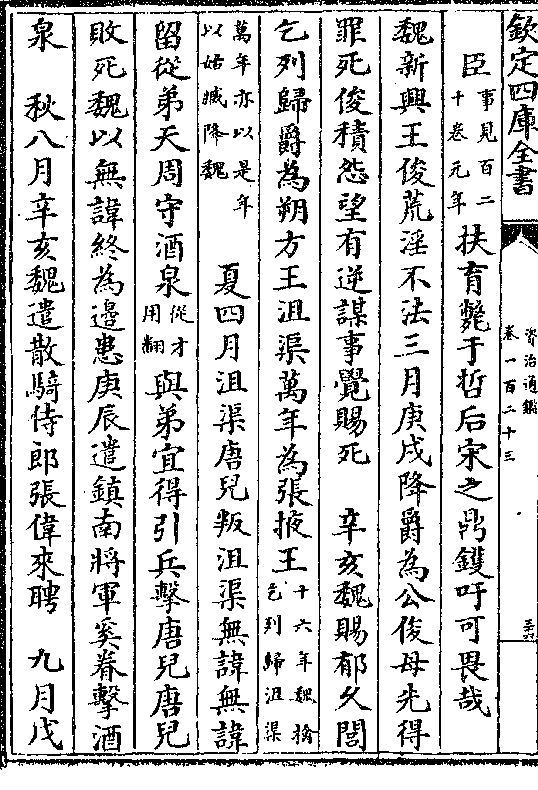 欽定四庫全書
資治通鑑
卷一百二十三
臣事見百二十卷元年扶育斃于哲后宋之鼎鑊吁可畏哉
魏新興王俊荒淫不法三月庚戌降爵為公俊母先得
罪死俊積怨望有逆謀事覺賜死 辛亥魏賜郁久閭
乞列歸爵為朔方王沮渠萬年為張掖王十六年魏擒乞列歸沮渠
萬年亦以是年以姑臧降魏 夏四月沮渠唐兒叛沮渠無諱無諱
留從弟天周守酒泉從才用翻與弟宜得引兵擊唐兒唐兒
敗死魏以無諱終為邊患庚辰遣鎮南將軍奚眷擊酒
泉 秋八月辛亥魏遣散騎侍郎張偉來聘 九月戊